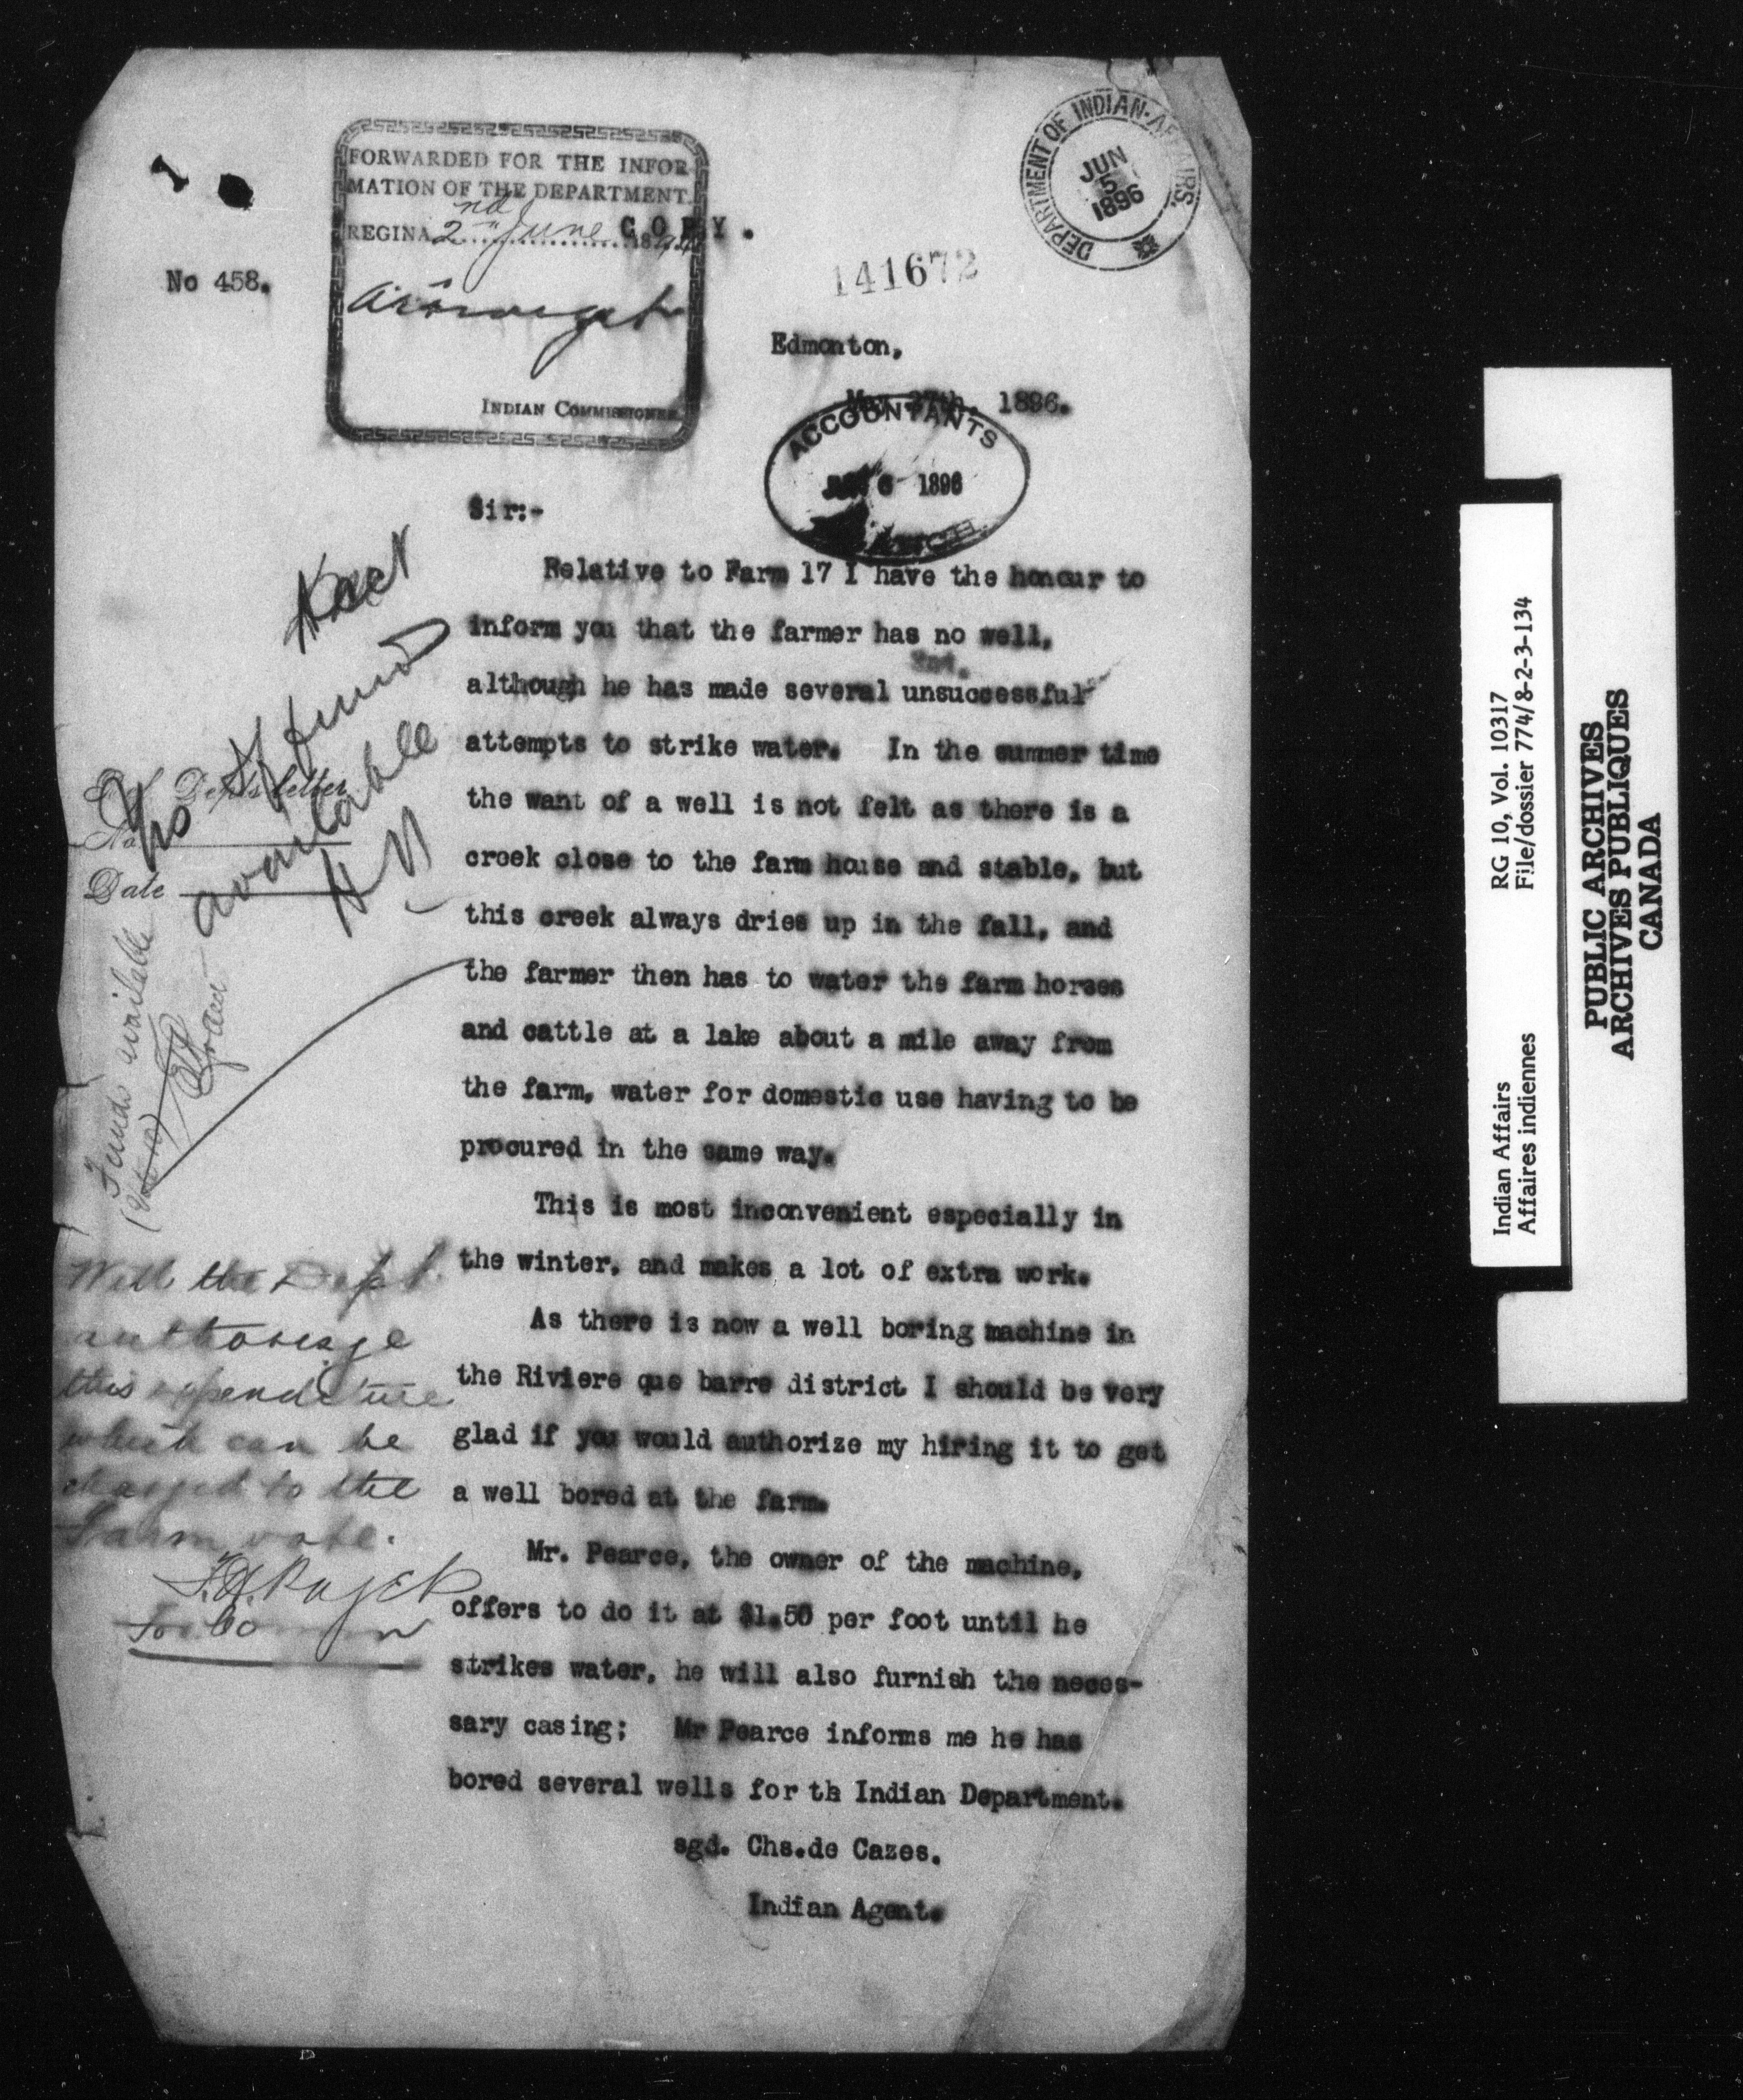 FORWARDED FOR THE INFOR
MATION OF THE DEPARTMENT.
REGINA 2nd June 189
INDIAN COMMISSIONER
COPY.
DEPARTMENT OF INDIAN AFFAIRS.
JUN
5
1896
No 458.
141672
Edmonton,
May 27th. 1896.
ACCOUNTANTS
6 1896
Sir:-
Relative to Farm 17 I have the honour to
inform you that the farmer has no well,
although he has made several unsuccessful
attempts to strike water. In the summer time
the want of a well is not felt as there is a
creek close to the farm house and stable, but
this creek always dries up in the fall, and
the farmer then has to water the farm horses
and cattle at a lake about a mile away from
the farm, water for domestic use having to be
procured in the same way.
This is most inconvenient especially in
the winter, and makes a lot of extra work.
As there is now a well boring machine in
the Riviere que barre district I should be very
glad if you would authorize my hiring it to get
a well bored at the farm.
Mr. Pearce, the owner of the machine,
offers to do it at $1.50 per foot until he
strikes water, he will also furnish the neces-
sary casing; Mr Pearce informs me he has
bored several wells for th Indian Department.
sgd. Chs.de Cazes.
Indian Agent.
No funds
available
Dept's letter
No
Date
Funds available
Will the Dept.
authorize
this expenditure
which can be
charged to the
Farm vote.
Indian Affairs RG 10, Vol. 10317
Affaires indiennes File/dossier 774/8-2-3-134
PUBLIC ARCHIVES
ARCHIVES PUBLIQUES
CANADA